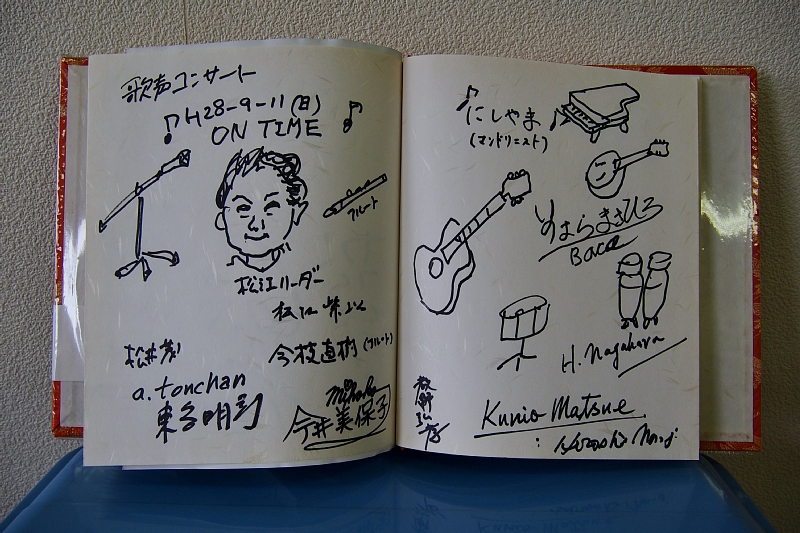 歌声コンサート
H28-9-11(日)
ON TIME
フルート
松江リーダー
松井茂
今枝直樹(フルート)
a.tonchan
mihoko
今井美保子
にしやま
(マンドリニスト)
まさひろ
Baca
H. Nagahara
Kunio Matsue